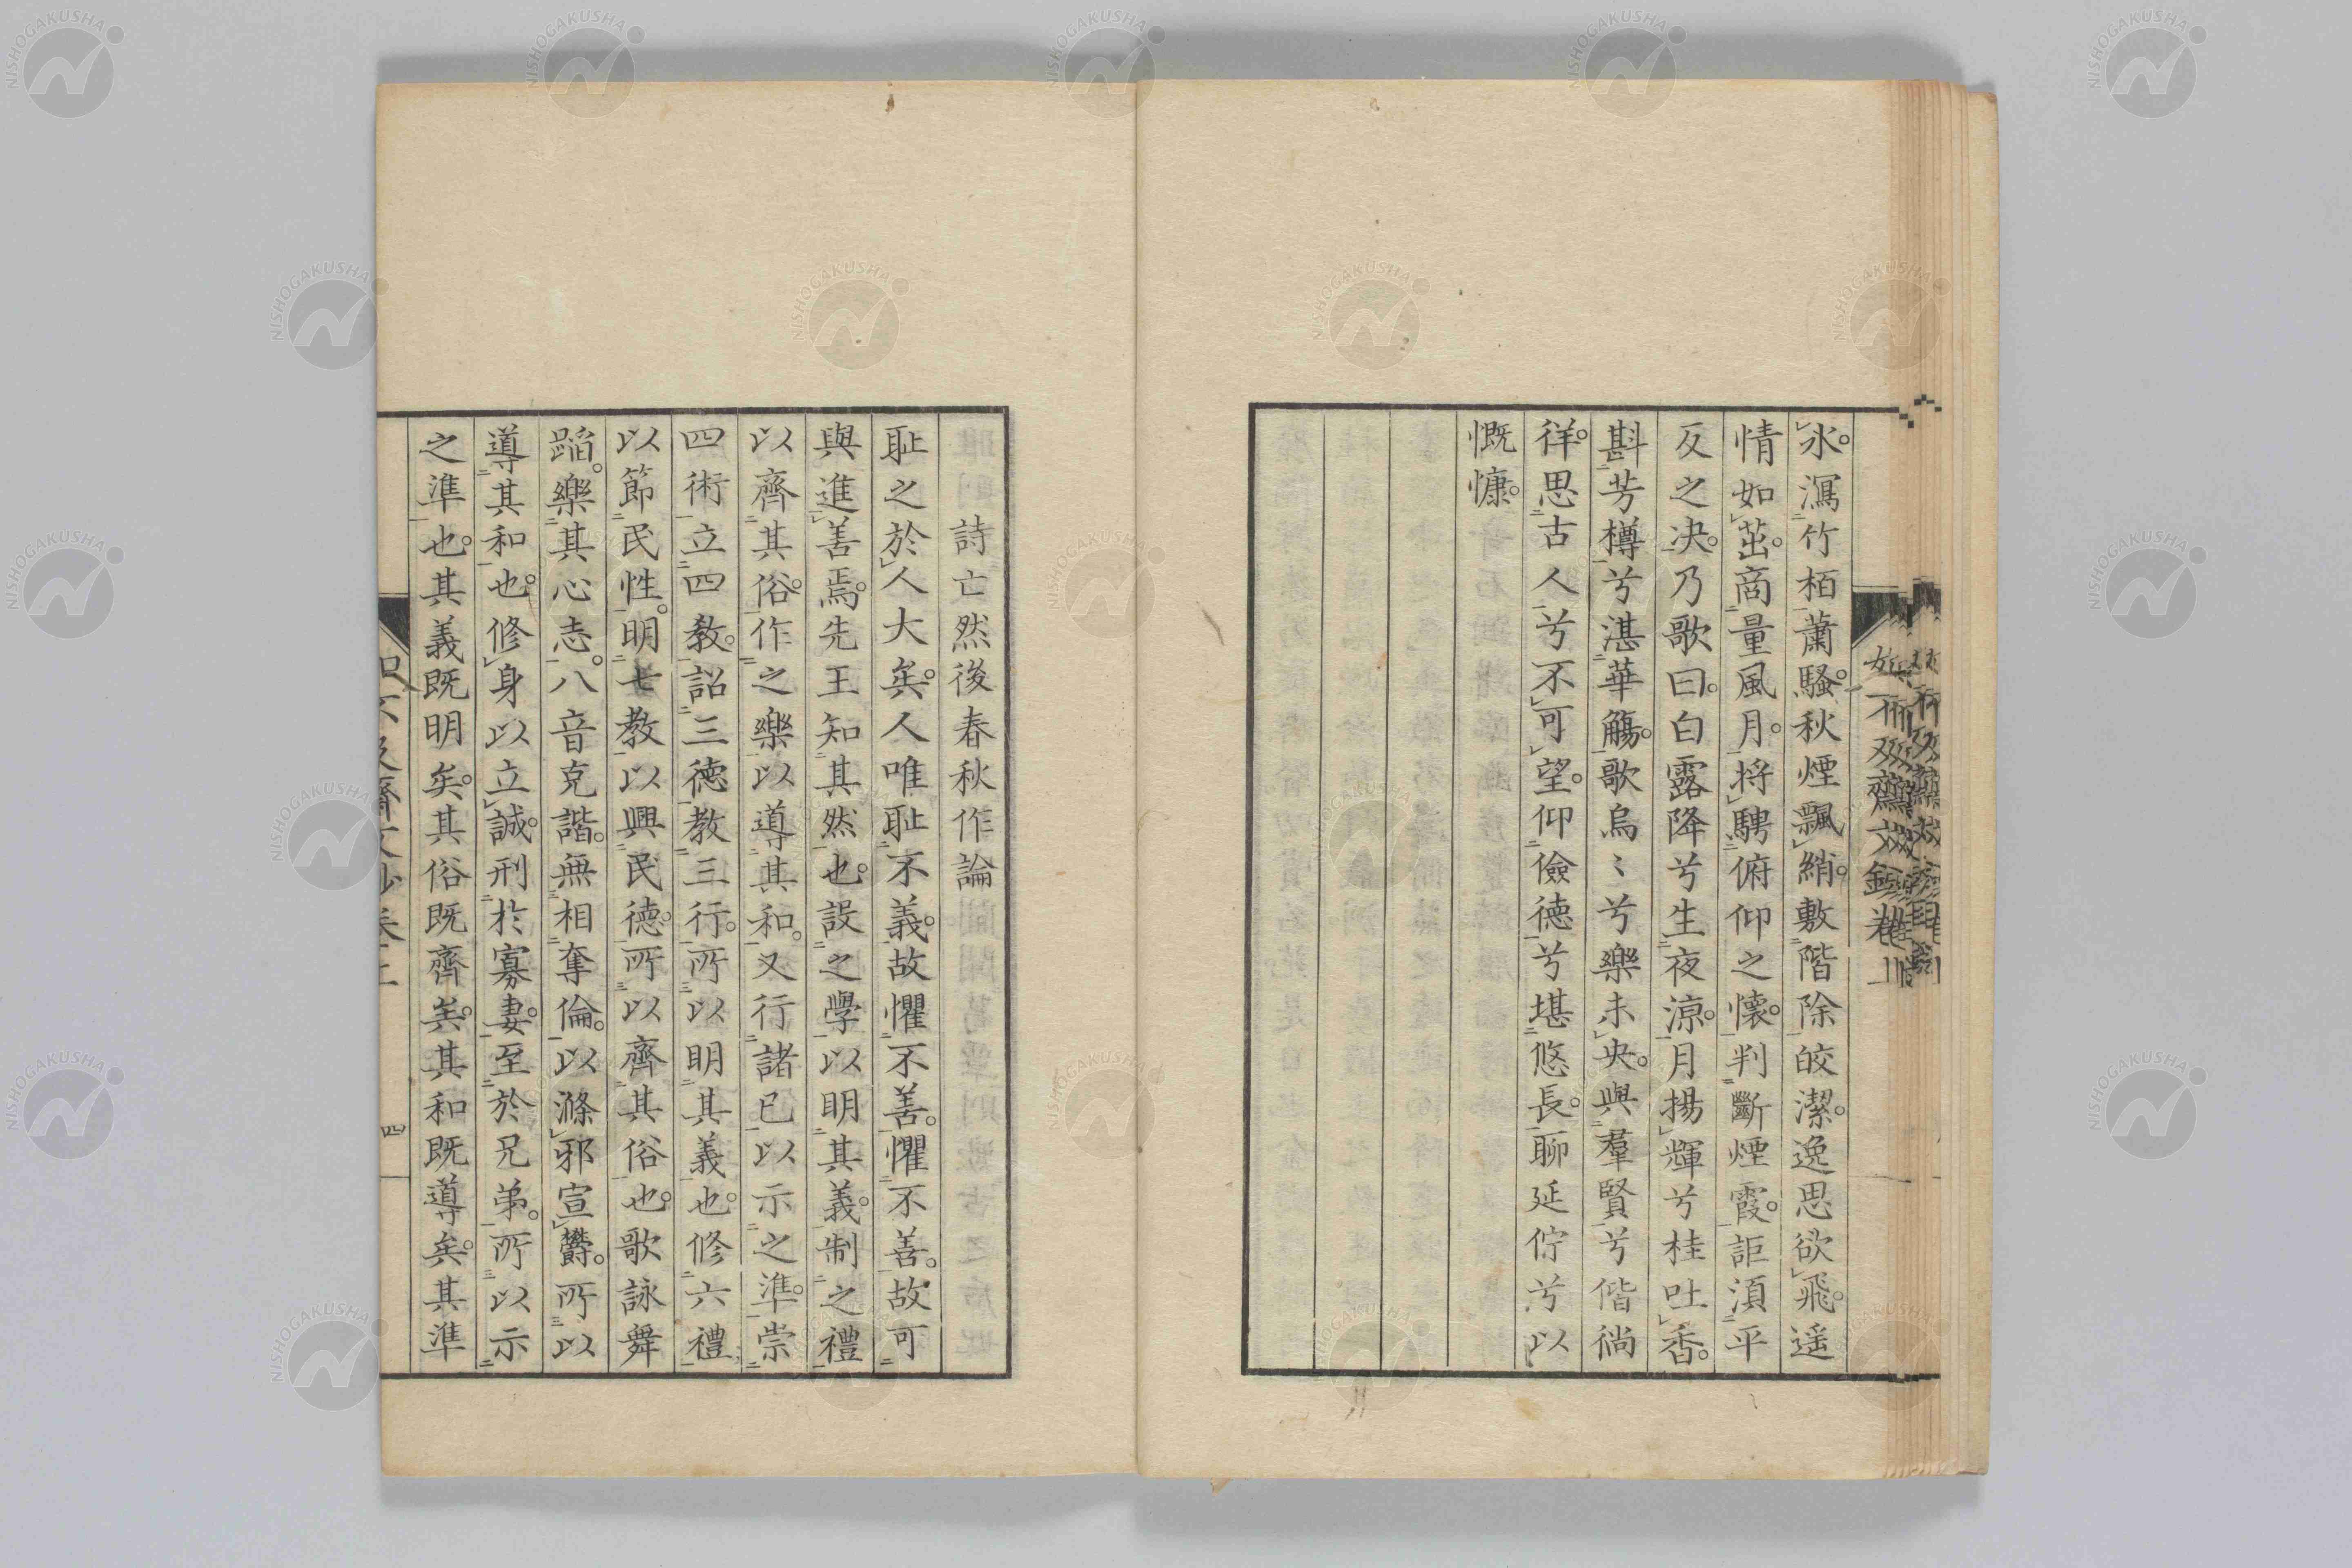 氷。瀉竹栢蕭騷。秋煙飄綃。敷階除皎潔。逸思欲飛。遥
情如茁。商量風月。将騁俯仰之懐。判斷煙霞。詎湏平
反之决。乃歌曰。白露降兮生夜涼。月揚輝兮桂吐香。
斟芳樽兮湛華觴。歌烏〻兮樂未央。與羣賢兮偕徜
徉。思古人兮不可望。仰儉徳兮堪悠長。聊延佇兮以
慨慷。
詩亡然後春秋作論
耻之於人大矣。人唯耻不義。故懼不善。懼不善。故可
與進善焉。先王知其然也。設之學以明其義。制之禮
以齊其俗。作之樂以導其和。又行諸已以示之準。崇
四術立四教。詔三徳教三行。所以明其義也。修六禮
以節民性。明七教以興民徳。所以齊其俗也。歌詠舜
蹈。樂其心志。八音克諧。無相奪倫。以滌邪宣欝。所以
導其和也。修身以立誠。刑於寡妻。至於兄弟。所以示
之準也。其義既明矣。其俗既齊矣。其和既導矣。其準
四